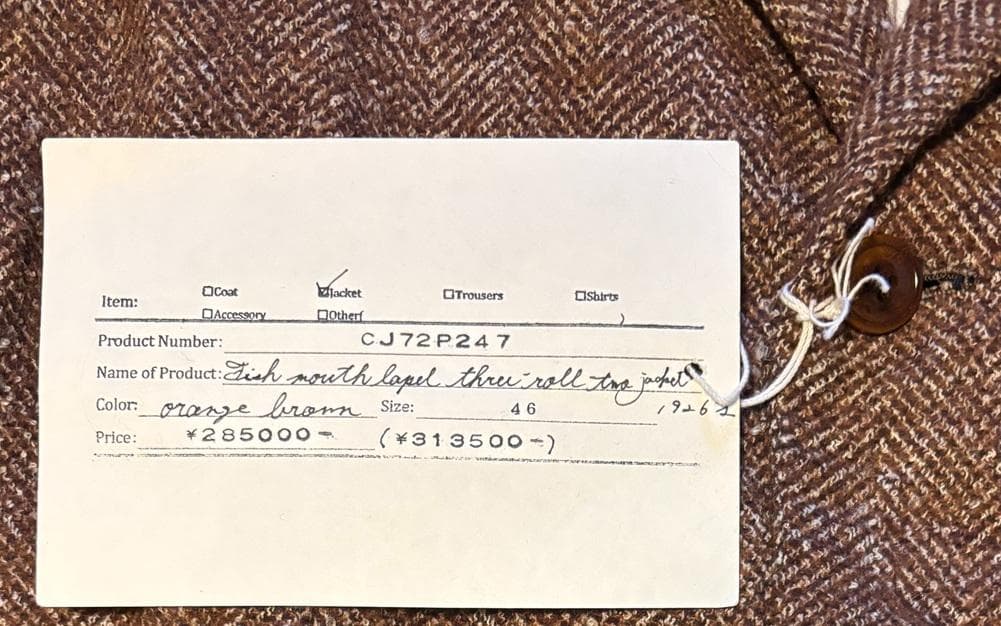 Item: ☐Coat ☑Jacket ☐Trousers ☐Shirts
☐Accessory ☐Other( )
Product Number: CJ72P247
Name of Product: Fish mouth lapel three-roll two jacket
Color: orange brown Size: 46
Price: ¥285000- (¥313500-)